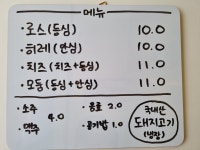 메뉴
·로스(등심) 10.0
·히레(안심) 10.0
·치즈(치즈+등심) 11.0
·모둠(등심+안심) 11.0
·소주
·맥주 4.0
·음료 2.0
·공기밥 1.0
국내산
도돼지고기
(냉장)